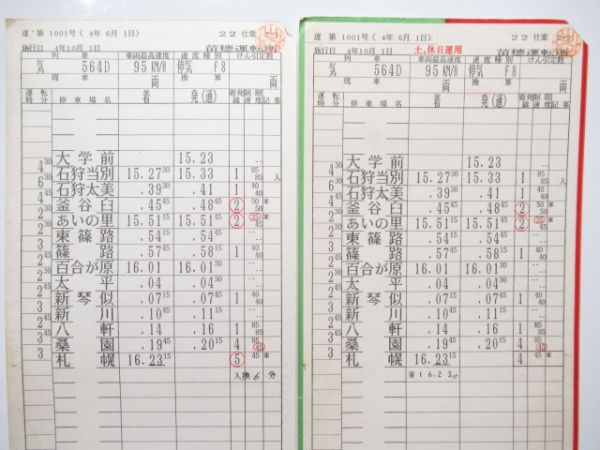 達 第 1001号 ( 4年 6月 1日) 22 仕業
施行日 4年10月 1日 苗穂運転所
列 車 車両最高速度 速度種別 けん引定数
気 564D 95 KM/H 停気 F8 両
現 車 換 算
運転時分 停車場名 着 発(通) 着発線 制限速度 記事
大学前 15.23
4 30 石狩当別 15.27 30 15.33 1 85 85 入
6 30 石狩太美 .39 30 .41 1 40 40
4 30 釜谷臼 .45 30 .48 45 2 50 50 ※
2 45 あいの里 15.51 15 15.51 45 2 35 45
2 45 東篠路 .54 15 .54 45
3 篠路 .57 45 .58 45 1
百合が原 16.01 16.01 30
太平 .04 .04 30
新琴似 .07 15 .07 45 1 40 40
新川 .10 45 .11 15
八軒 .14 .16 1 85 85
3 桑園 .19 45 .20 15 4 85 45
3 札幌 16.23 15 5 45 ※
入換 6 分
達 第 1001号 ( 4年 6月 1日) 22 仕業
施行日 4年10月 1日 土,休日運用 苗穂運転所
列 車 車両最高速度 速度種別 けん引定数
気 564D 95 KM/H 停気 F8 両
現 車 換 算
運転時分 停車場名 着 発(通) 着発線 制限速度 記事
大学前 15.23
4 30 石狩当別 15.27 30 15.33 1 85 85 入
6 30 石狩太美 .39 30 .41 1 40 40
4 30 釜谷臼 .45 30 .48 45 2 50 50 ※
2 45 あいの里 15.51 15 15.51 45 2 35 45
東篠路 .54 15 .54 45
篠路 .57 45 .58 45 1
百合が原 16.01 16.01 30
太平 .04 .04 30
新琴似 .07 15 .07 45 1 40 40
新川 .10 45 .11 15
八軒 .14 .16 1 85 85
3 桑園 .19 45 .20 15 4 85 45
3 札幌 16.23 15 4 45 ※